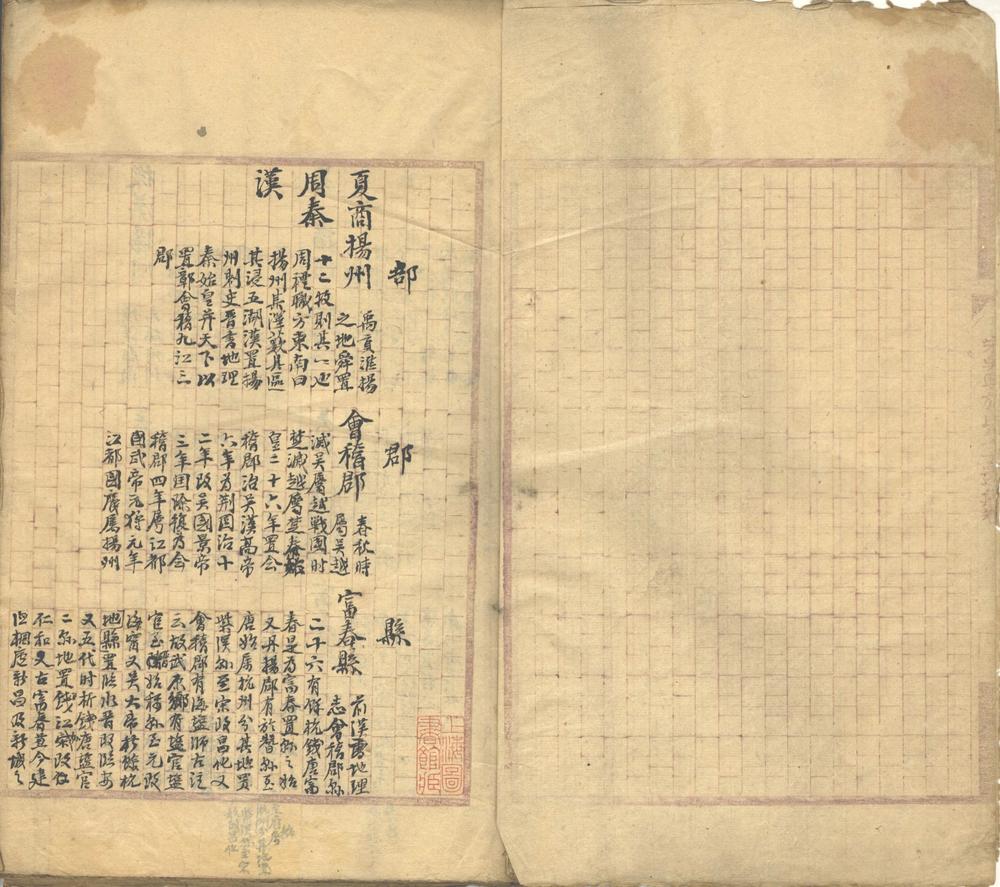 部
郡
縣
夏商揚州
周秦
漢
禹貢淮揚
之地舜置
十二牧則其一也
周禮職方東南曰
揚州其澤藪具區
其浸五湖漢置揚
州刺史晉書地理
秦始皇并天下以
置鄣會稽九江三
郡
會稽郡
春秋時
屬吳越
滅吳屬越戰國時
楚滅越屬楚秦始
皇二十六年置會
稽郡治吳漢高帝
六年為荆國治十
二年改吳國景帝
三年國除復為會
稽郡四年屬江都
國武帝元狩元年
江都國廢屬揚州
富春縣
前漢書地理
志會稽郡縣
二十六有餘杭錢唐富
春是為富春置縣之始
又丹揚郡有於朁縣至
唐始屬杭州分其地置
紫溪縣至宋改昌化又
會稽郡有海鹽師古注
云故武原鄉有鹽官鹽
官至始稱縣至元改
海寧又吳大帝析餘杭
地縣置臨水晉改臨安
又五代時析錢唐鹽官
二縣地置錢江宋改
仁和又古富春並今建
桐廬新昌及新城之
上海圖
書館